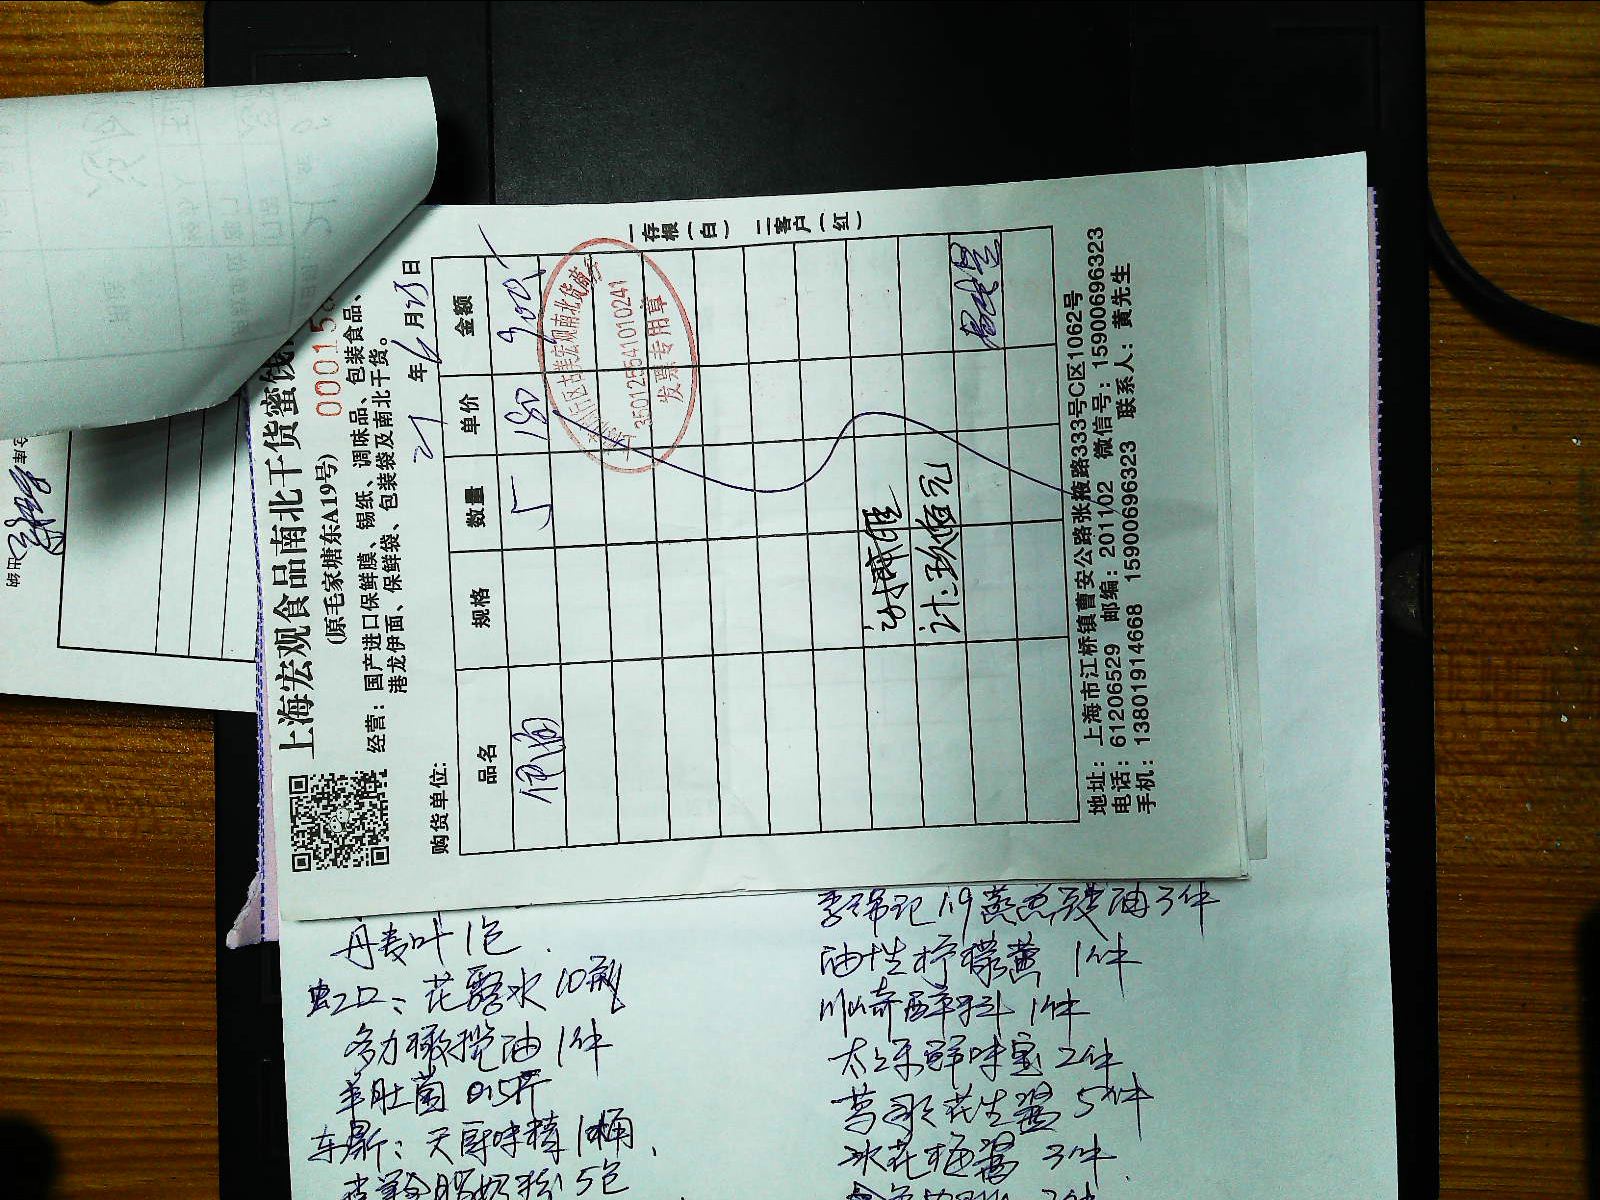 上海宏观食品南北干货蜜饯
(原毛家塘东A19号) 00015
经营：国产进口保鲜膜、锡纸、调味品、包装食品、
港龙伊面、保鲜袋、包装袋及南北干货。
购货单位： 21年6月23日
品名 规格 数量 单价 金额
伊面 5 180 900
古美宏观南北货商行
350125541010241
发票专用章
计：玖佰元
一存根（白） 二客户（红）
地址：上海市江桥镇曹安公路张掖路333号C区1062号
电话：61206529 邮编：201102 微信号：15900696323
手机：13801914668 15900696323 联系人：黄先生
丹麦叶1包
虹口：花露水10瓶
多力橄榄油1件
羊肚菌0.5斤
天厨味精1桶
5包
李锦记1.9蒸鱼豉油3件
油性柠檬黄 1件
川崎醉料 1件
太太乐鲜味宝2件
花生酱5件
冰花梅酱 3件